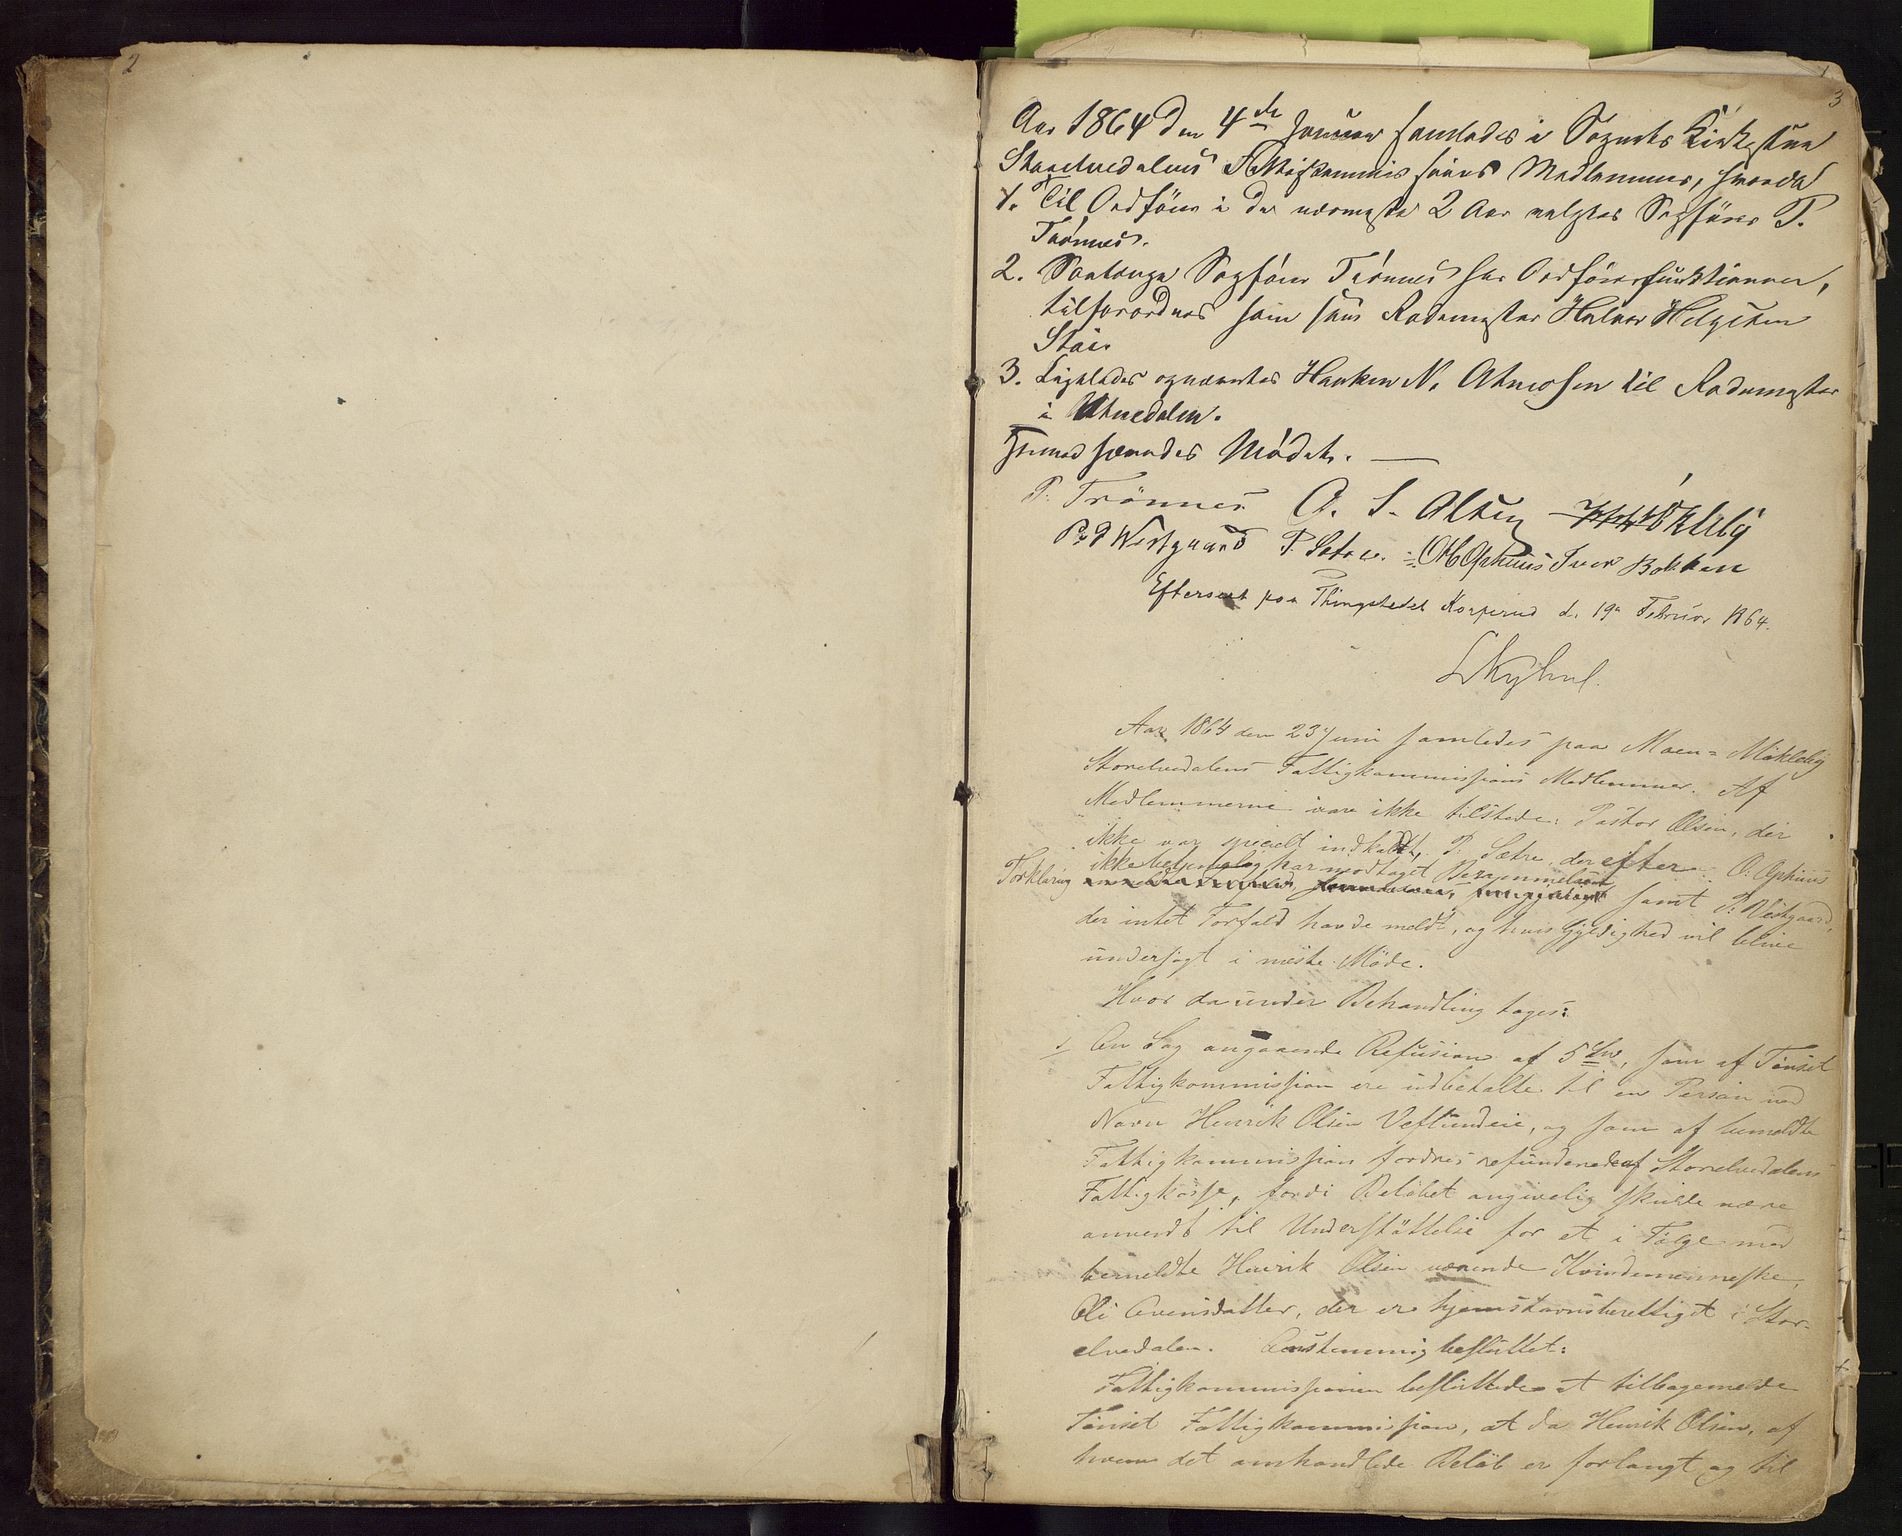 2
3
Aar 1864 den 4de Januar samledes i Sognets Kirkestue
Storelvedalens Fattigkommissions Medlemmer, hvorda
1. Til Ordfører i de nærmeste 2 Aar valgtes Sagfører P.
Trønnes.
2. Saalænge Sagfører Trønnes har Ordførerfunktionen,
tilforordnes som hans Rodemester Halvor Helgesen
Stai.
3. Ligeledes opnævntes Haaken N. Atneosen til Rodemester
i Atnedalen.
Hermed hævedes Mødet. —
P. Trønnes O. S. Olsen Møklebÿ
P. Westgaard P. Sætre. O. Ophuus Iver Bakken
Efterseet paa Thingstedet Korperud d. 19 Februar 1864.
Aar 1864 den 23 Juni samledes paa Moen-Møklebÿ
Storelvedalens Fattigkommissions Medlemmer. Af
Medlemmerne vare ikke tilstede: Pastor Olsen, der
ikke var specielt indkaldt, P. Sætre, der efter
Forklaring ikke har modtaget Berammelsen O. Ophuus
samt P. Vestgaard,
der intet Forfald havde meldt, og hvis Gyldighed vil blive
undersøgt i næste Møde.
Hvor da under Behandling toges:
1 En Sag angaaende Refusion af 5 Spd, som af Tønset
Fattigkommission ere udbetalte til en Person ved
Navn Henrik Olsen Vestundeie, og som af bemeldte
Fattigkommission fordres refunderede af Storelvedalens
Fattigkasse, fordi Beløbet angivelig skulde være
anvendt til Understøttelse for et i Følge med
bemeldte Henrik Olsen værende Kvindemenneske,
Oli Evensdatter, der er hjemstavnsberettiget i Stor-
elvedalen. Eenstemmig besluttet:
Fattigkommissionen besluttede at tilbagemelde
Tønset Fattigkommission, at da Henrik Olsen, af
hvem det omhandlede Beløb er forlangt og til